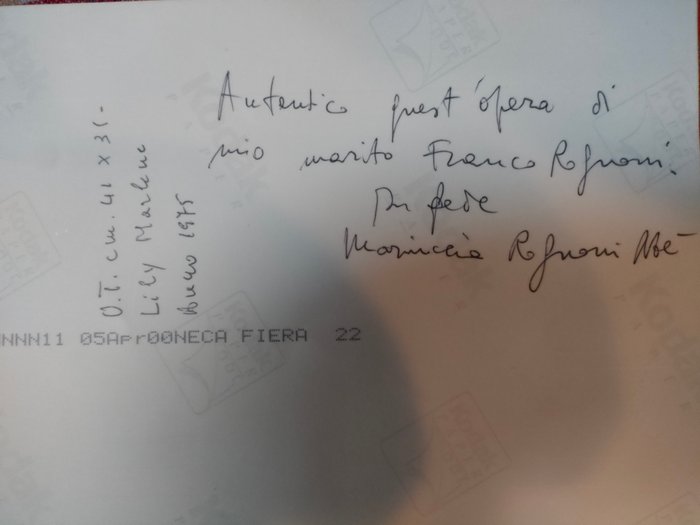 Autentico quest'opera di
mio marito Franco Rognoni.
In fede
Mariuccia Rognoni
O.T. cm. 41 x 31-
Lily Marlene
Anno 1975
NNN11 05Apr00NECA FIERA 22
Kodak